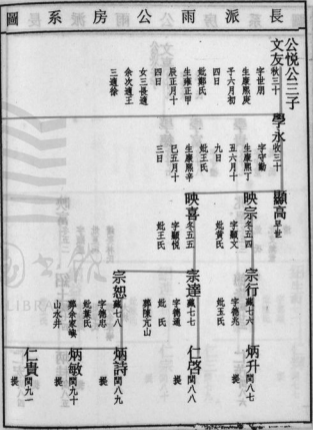 長派雨公房系圖
公悅公三子
文友 秋三十
字世朋
生康熙庚
子六月初
四日
妣鄭氏
生雍正甲
辰正月十
四日
女三長適
余次適王
三適徐
學永 收三十
字守勤
生康熙丁
丑六月十
九日
妣王氏
生康熙辛
巳五月十
三日
顯高 早世
映宗 冬五四
字顯文
妣黃氏
映喜 冬五五
字顯悅
妣王氏
宗行 藏七六
字德兆
妣王氏
宗達 藏七七
字德通
妣 氏
葬陳亢山
宗恕 藏七八
字德忠
妣葉氏
葬余家塢
山水井
炳升 閏八七
提
仁啓 閏八八
提
炳詩 閏八九
提
炳敏 閏九十
提
仁貴 閏九一
提
LIBRA